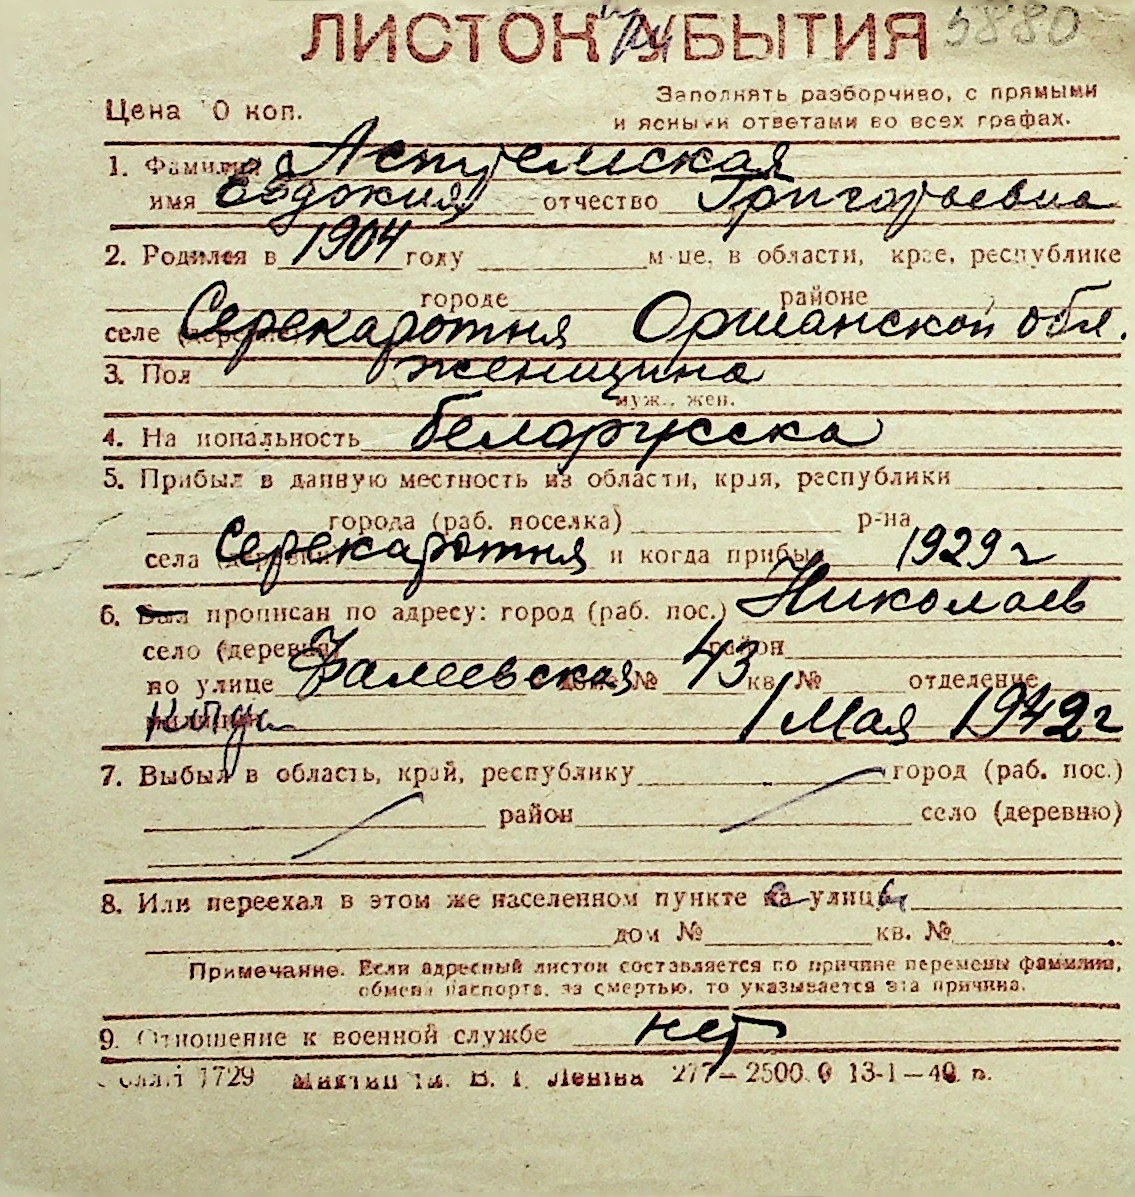 ЛИСТОК УБЫТИЯ 5880
Цена 0 коп.
Заполнять разборчиво, с прямыми
и ясными ответами во всех графах.
1. Фамилия
имя Евдокия отчество Григорьевна
2. Родился в 1904 году м-це, в области, крае, республике
городе районе
селе Серекаротня Оршанской обл.
3. Пол женщина
муж., жен.
4. Национальность белорусска
5. Прибыл в данную местность из области, края, республики
города (раб. поселка) р-на
села Серекаротня и когда прибыл 1929 г
6. Был прописан по адресу: город (раб. пос.) Николаев
село (деревня) район
по улице Фалеевская дом № 43 кв. № отделение
милиции Когда 1 Мая 1942 г
7. Выбыл в область, край, республику город (раб. пос.)
район село (деревню)
8. Или переехал в этом же населенном пункте на улицу
дом № кв. №
Примечание. Если адресный листок составляется по причине перемены фамилии,
обмена паспорта, за смертью, то указывается эта причина.
9. Отношение к военной службе нет
1729 ім. В. І. Леніна 277—2500.0 13-1—40 п.